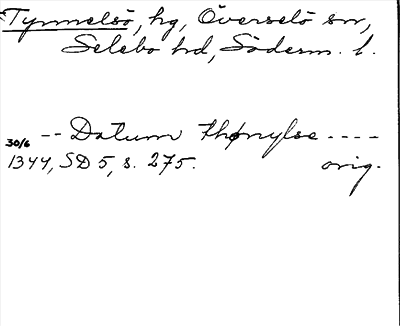 Tynnelsö, hg, Överselö sn,
Selebo hd, Söderm. l.
30/6 -- Datum thynylsø ----
1344, SD 5, s. 275. orig.